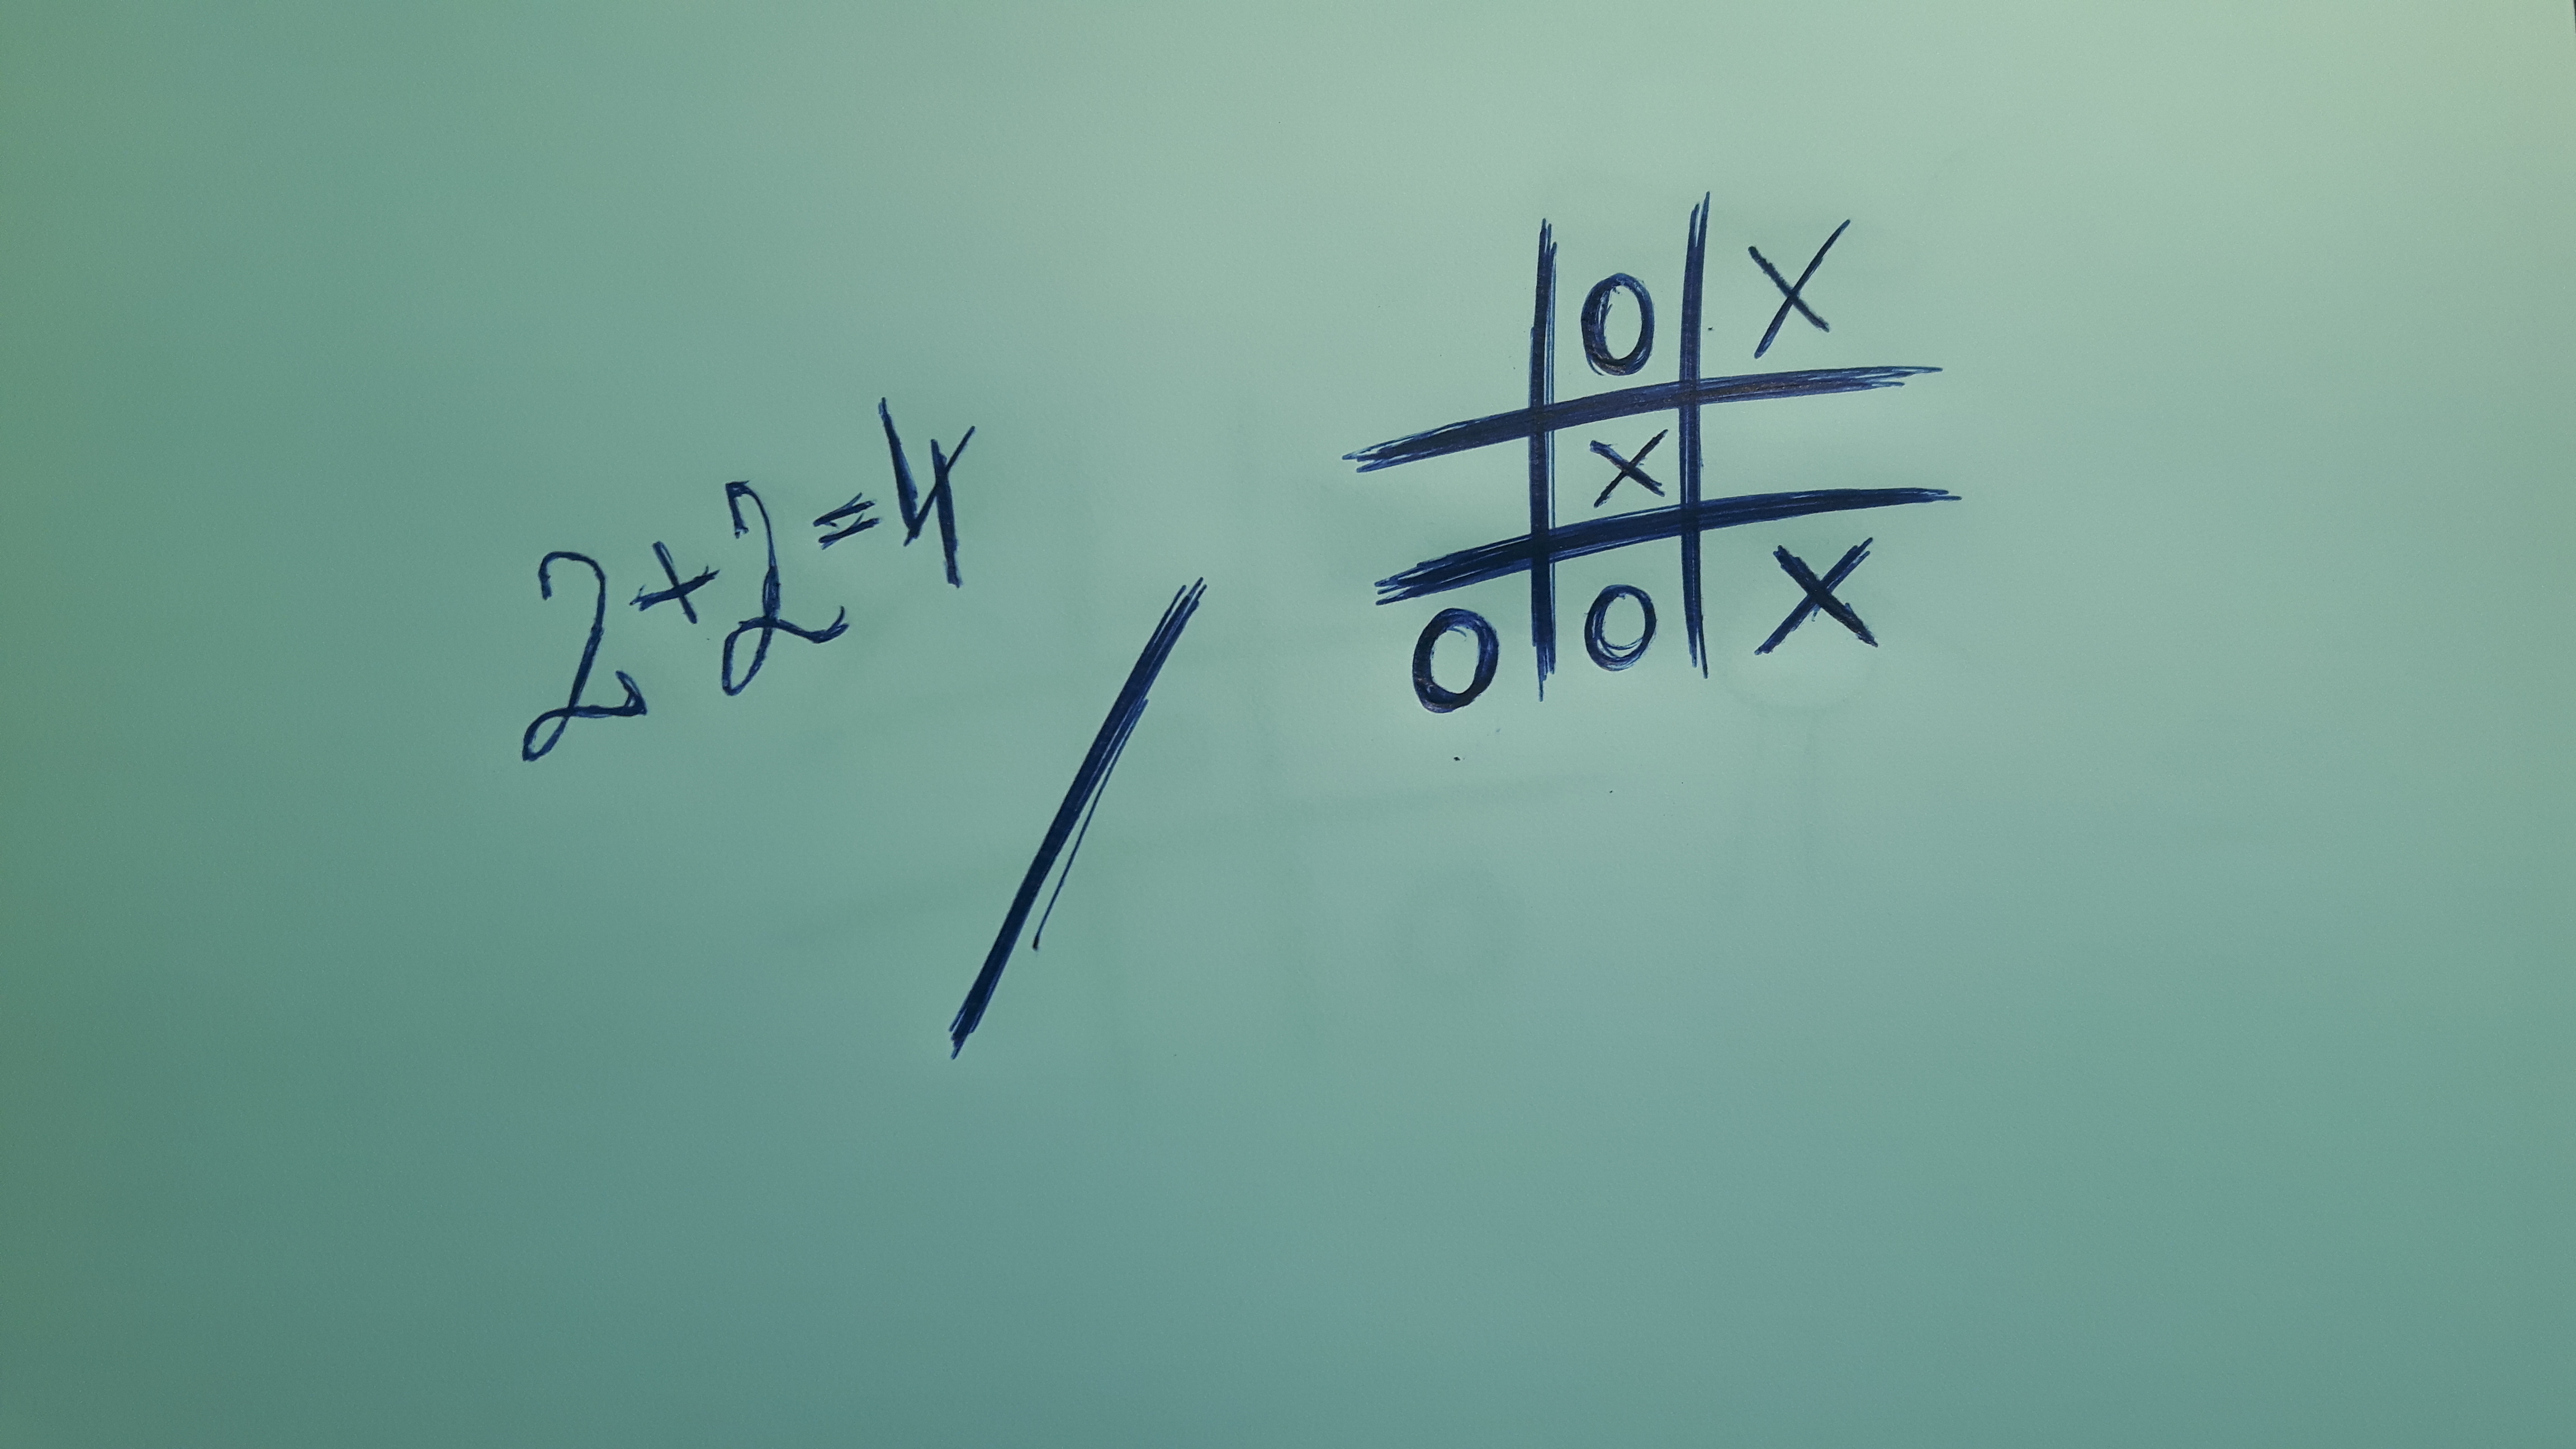 2+2=4
O X
X
O O X